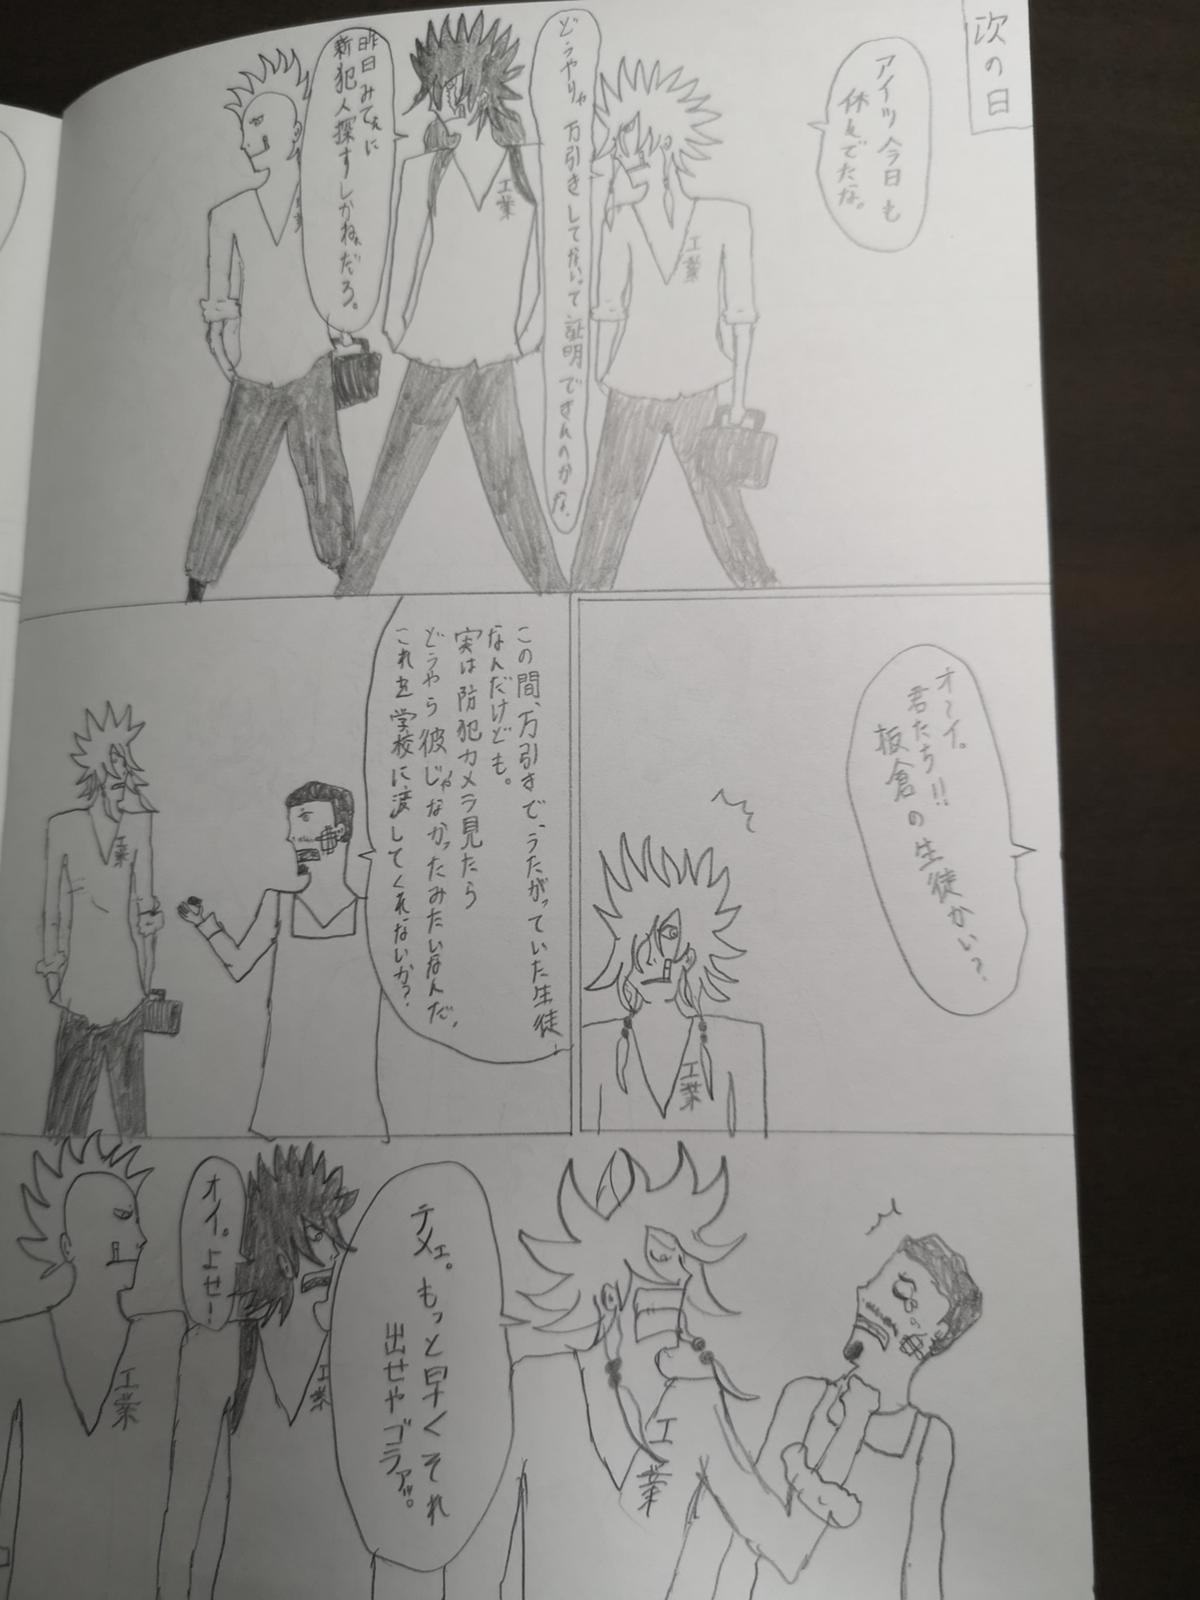 次の日
アイツ今日も
休んでたな。
工業
どうやりゃ万引きしてないって証明できんのかな。
工業
昨日みてぇに
新犯人探すしかねぇだろ。
業
オーイ。
君たち!!
板倉の生徒かい?
工業
この間、万引きで、うたがっていた生徒、
なんだけども。
実は防犯カメラ見たら
どうやら彼じゃなかったみたいなんだ。
これを学校に渡してくれないか?
工業
テメェ。もっと早くそれ
出せやゴラァ。
工業
オイ。よせー
工業
工業